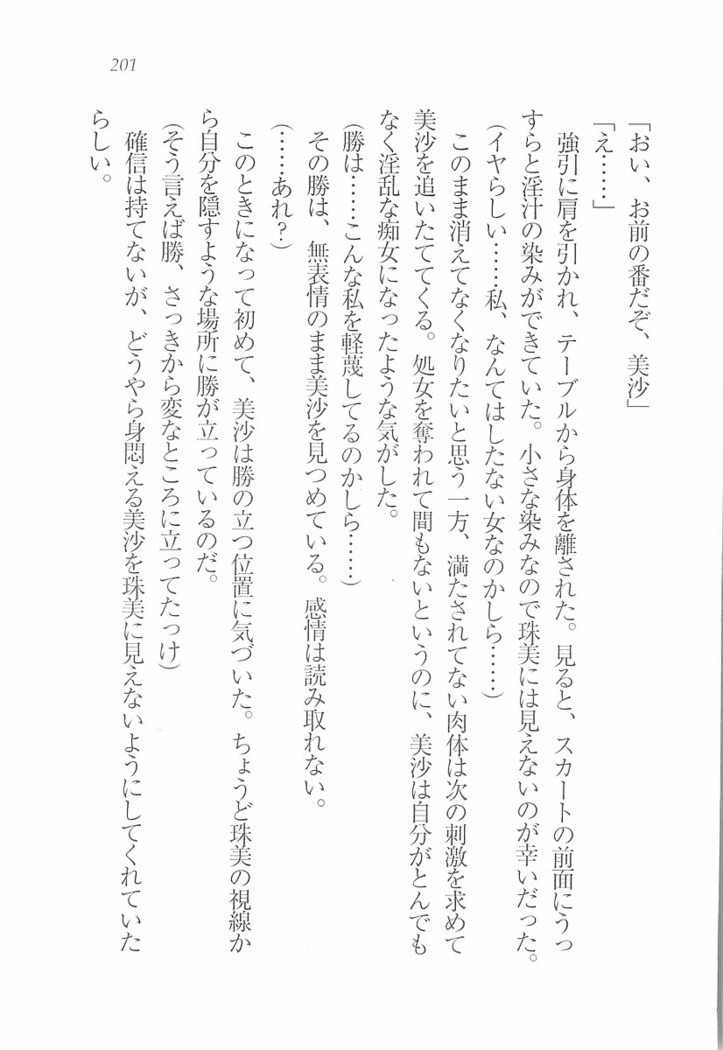 201
「おい、お前の番だぞ、美沙」
「え……」
　強引に肩を引かれ、テーブルから身体を離された。見ると、スカートの前面にうっ
すらと淫汁の染みができていた。小さな染みなので珠美には見えないのが幸いだった。
（イヤらしい……私、なんてはしたない女なのかしら……）
　このまま消えてなくなりたいと思う一方、満たされてない肉体は次の刺激を求めて
美沙を追いたててくる。処女を奪われて間もないというのに、美沙は自分がとんでも
なく淫乱な痴女になったような気がした。
（勝は……こんな私を軽蔑してるのかしら……）
　その勝は、無表情のまま美沙を見つめている。感情は読み取れない。
（……あれ？）
　このときになって初めて、美沙は勝の立つ位置に気づいた。ちょうど珠美の視線か
ら自分を隠すような場所に勝が立っているのだ。
（そう言えば勝、さっきから変なところに立ってたっけ）
　確信は持てないが、どうやら身悶える美沙を珠美に見えないようにしてくれていた
らしい。